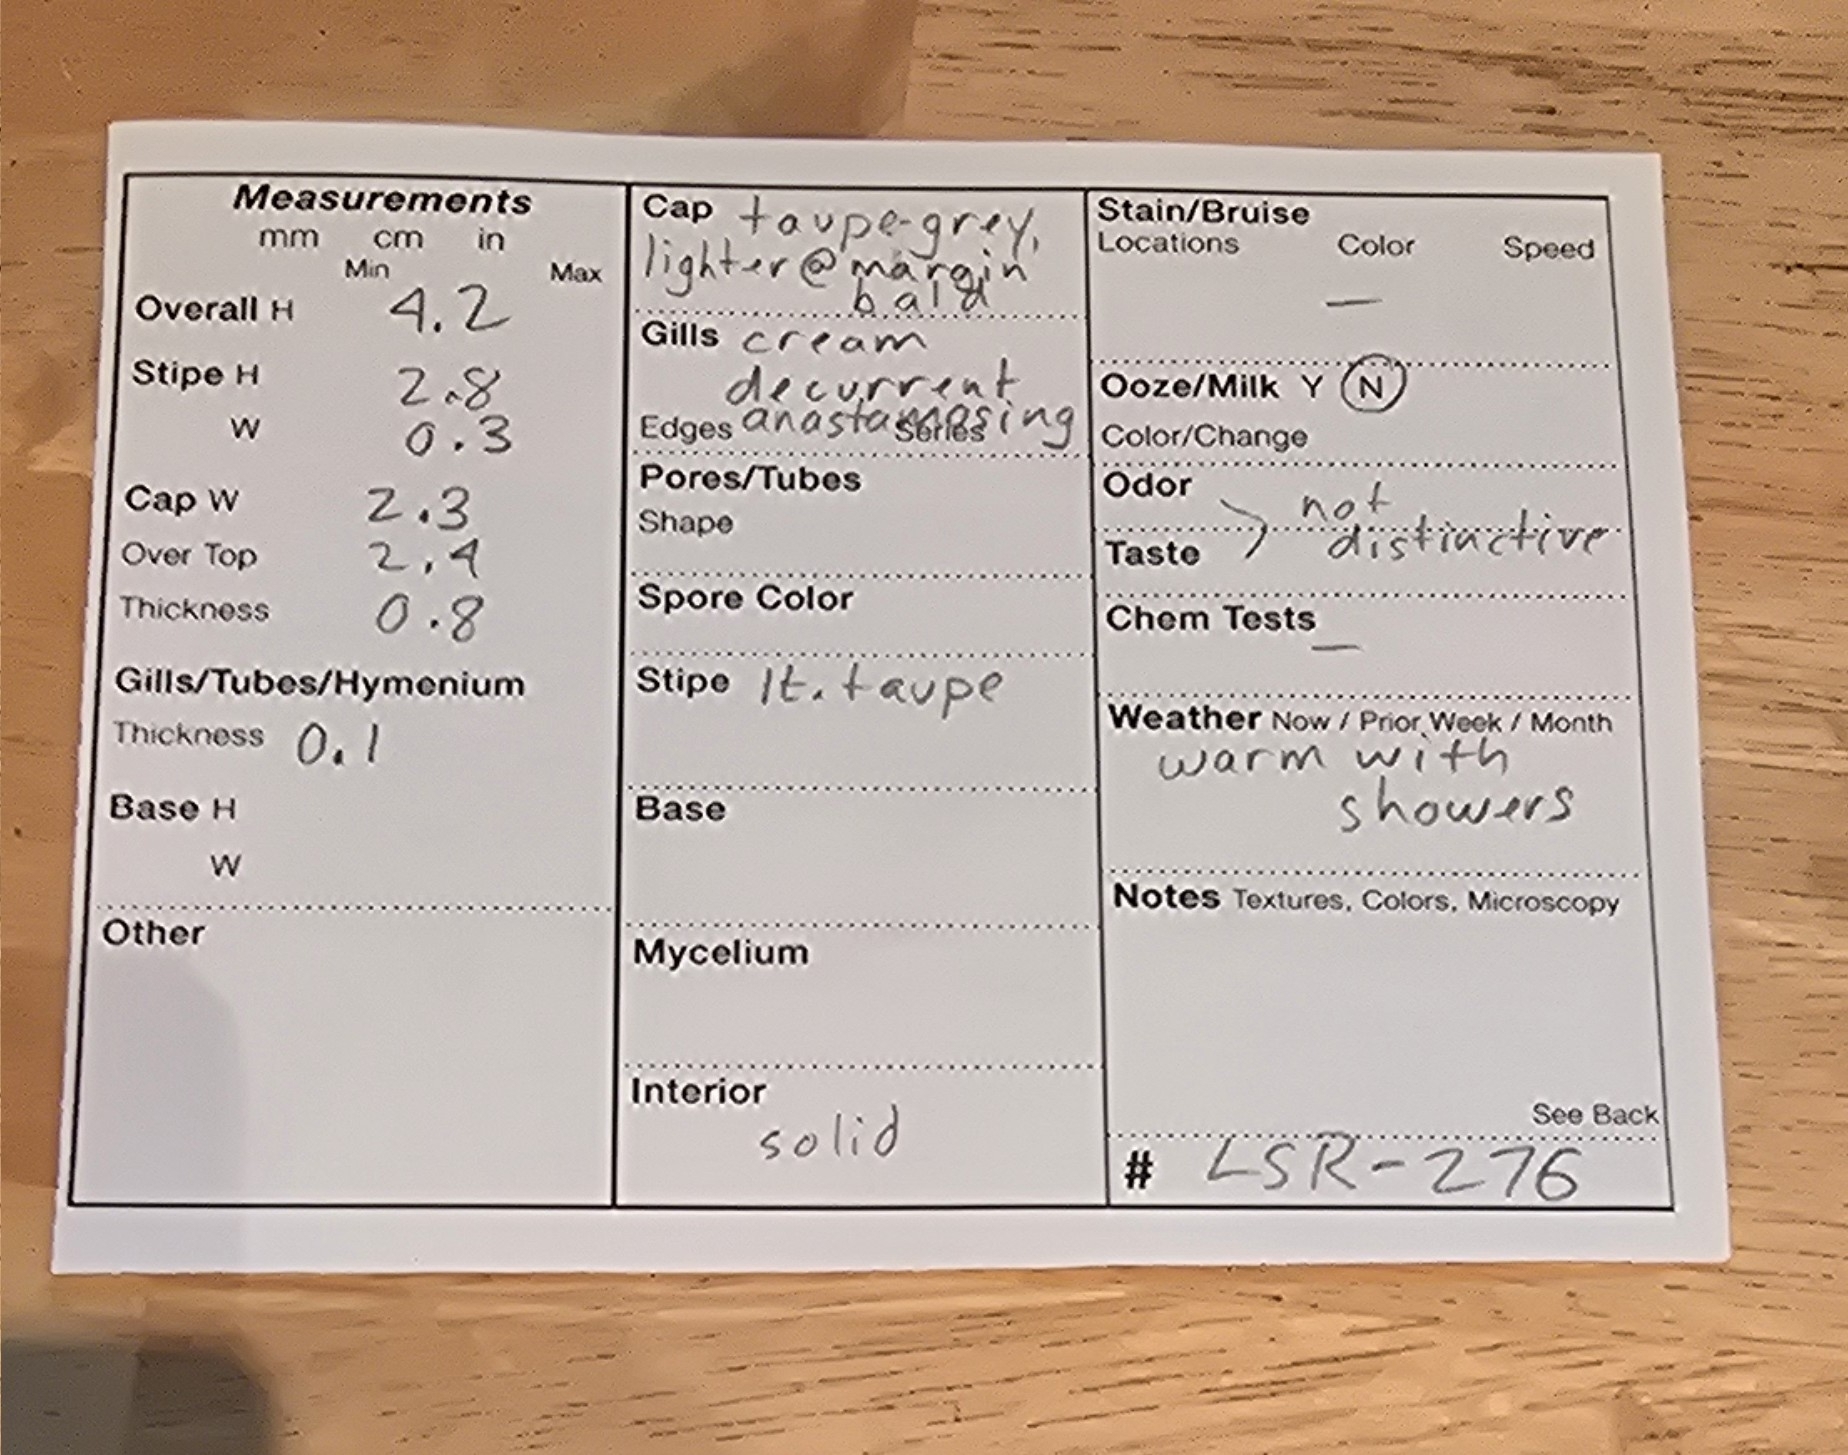 Measurements
mm cm in
Min Max
Overall H 4.2
Stipe H 2.8
W 0.3
Cap W 2.3
Over Top 2.4
Thickness 0.8
Gills/Tubes/Hymenium
Thickness 0.1
Base H
W
Other
Cap taupe-grey,
lighter @ margin
bald
Gills cream
decurrent
Edges anastamosing Series
Pores/Tubes
Shape
Spore Color
Stipe lt. taupe
Base
Mycelium
Interior
solid
Stain/Bruise
Locations Color Speed
—
Ooze/Milk Y N
Color/Change
Odor not
Taste distinctive
Chem Tests
—
Weather Now / Prior Week / Month
warm with
showers
Notes Textures, Colors, Microscopy
See Back
# LSR-276